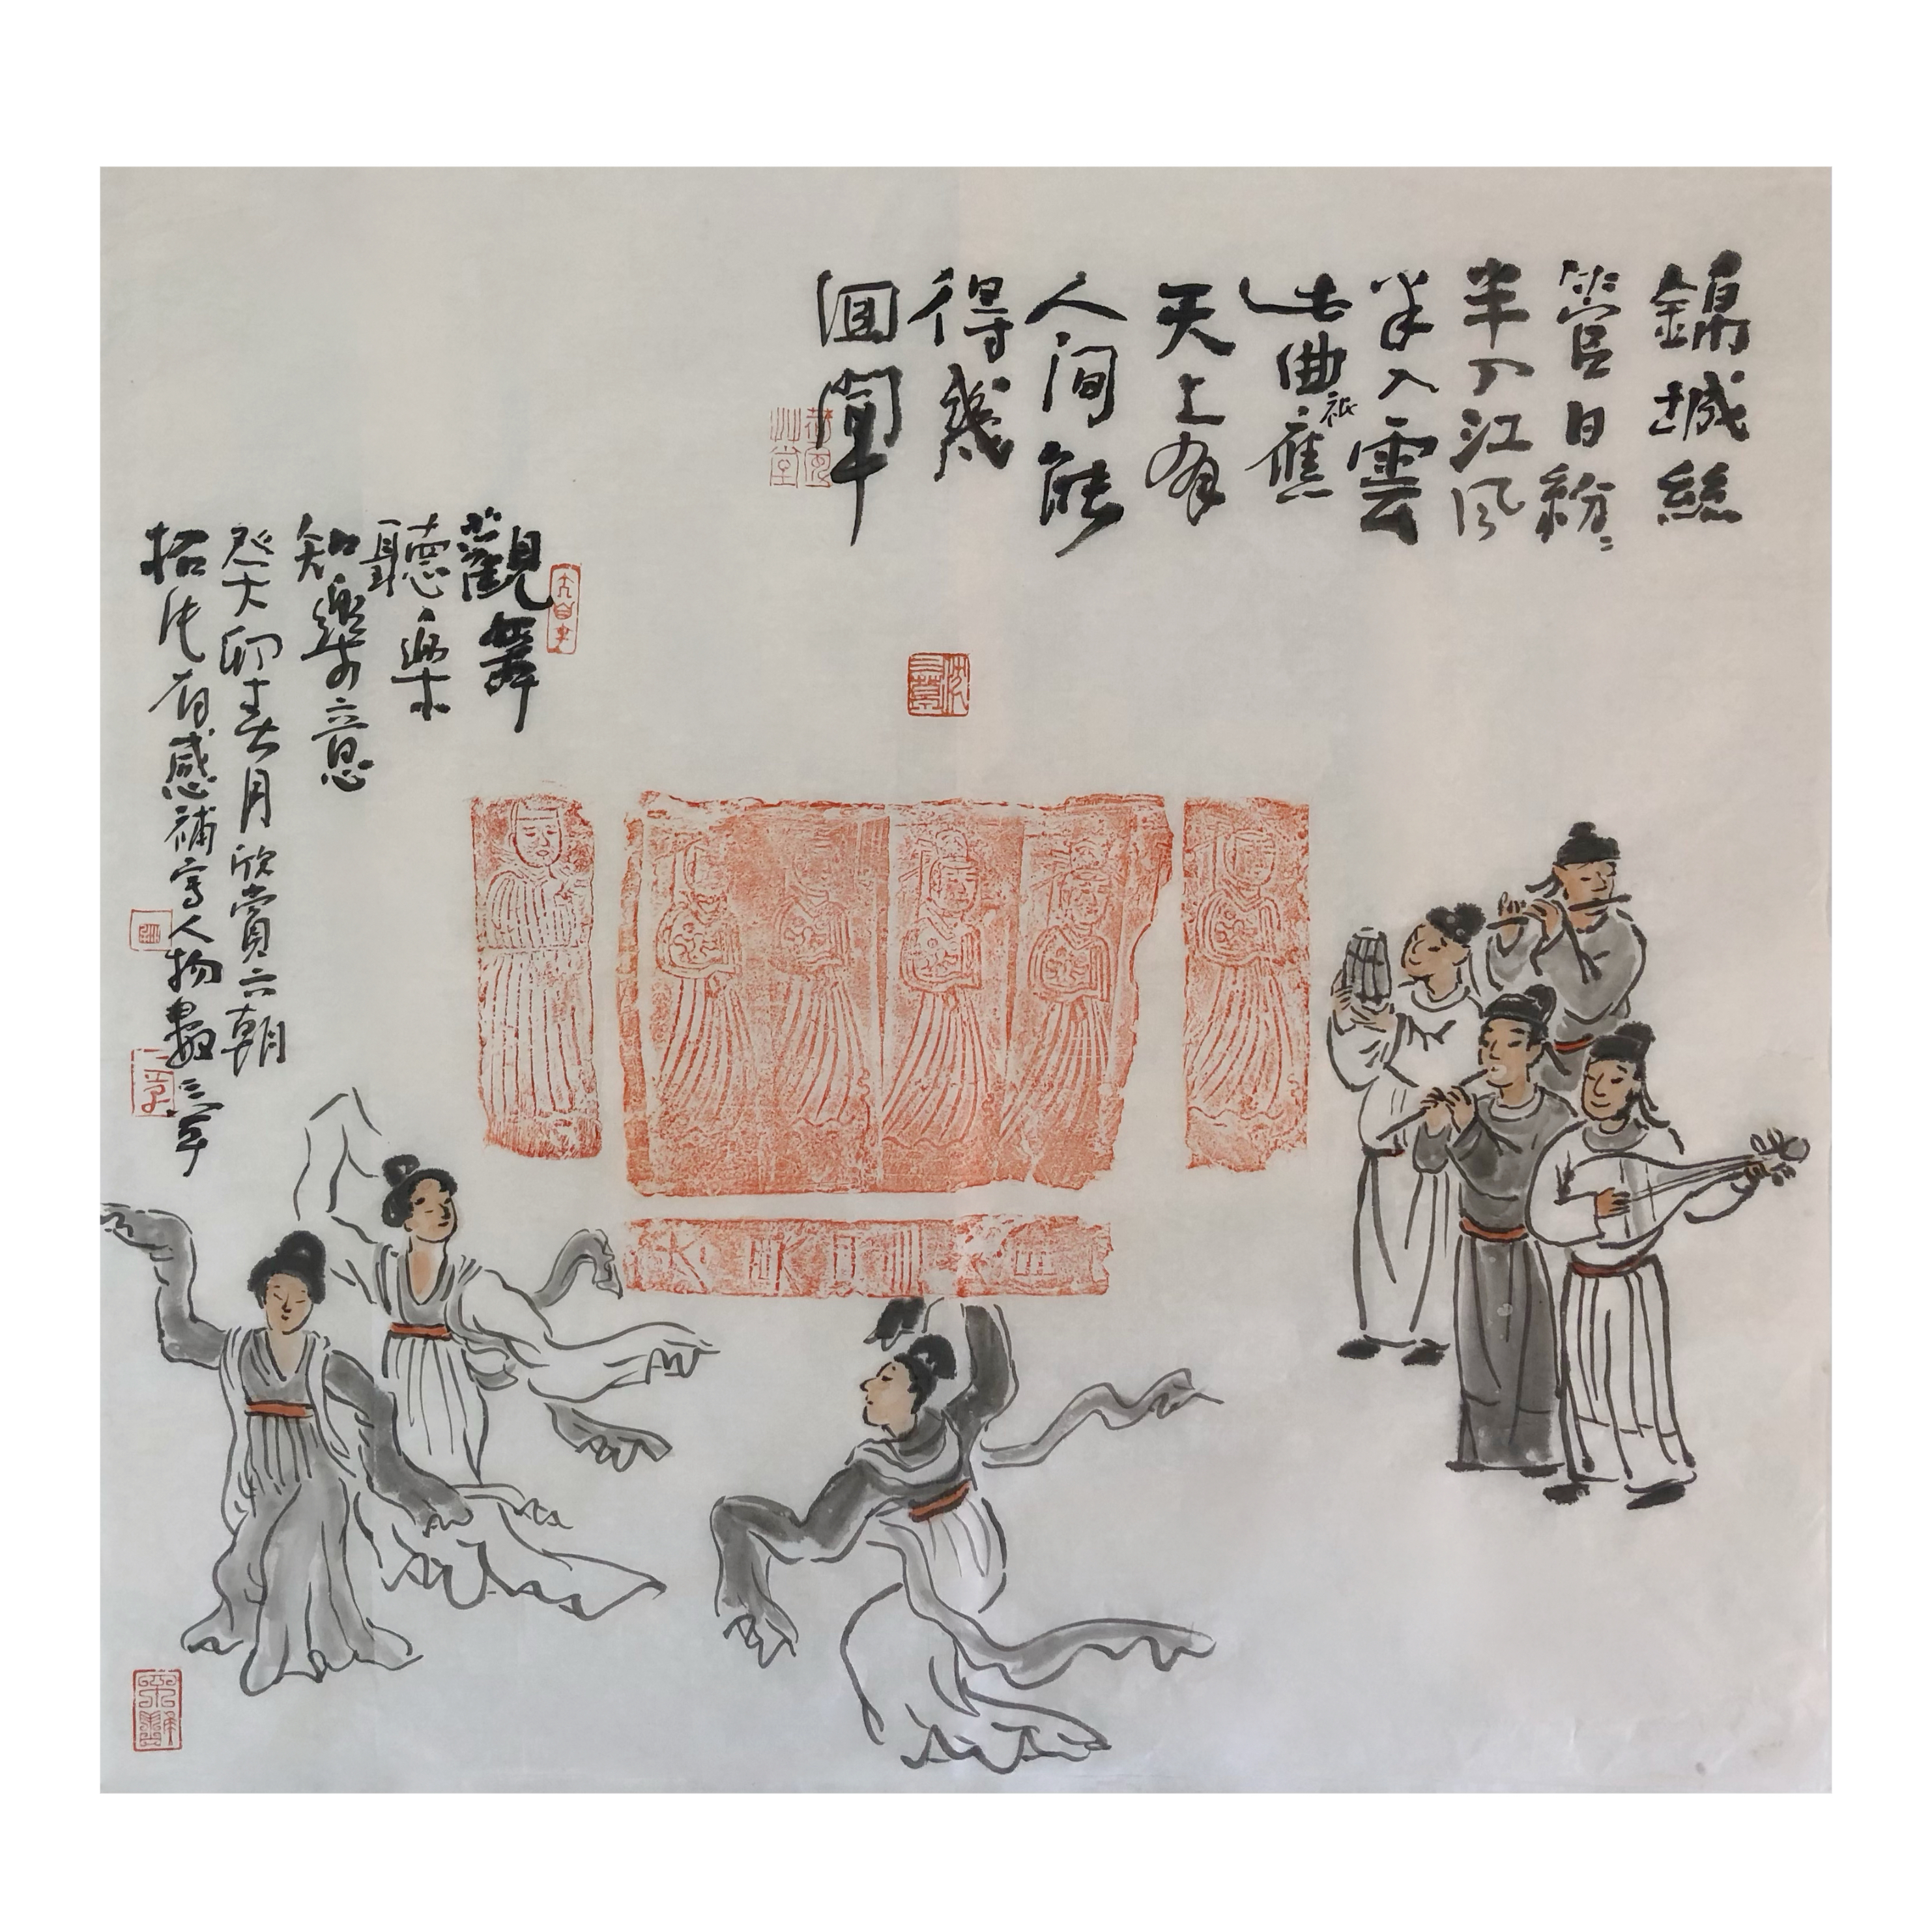 錦城絲
管日紛〻
半入江風
半入雲
此曲祇應
天上有
人間能
得幾
回聞
觀舞
聽樂
知樂之意
癸卯春月欣賞六朝
拓片有感補寫人物數